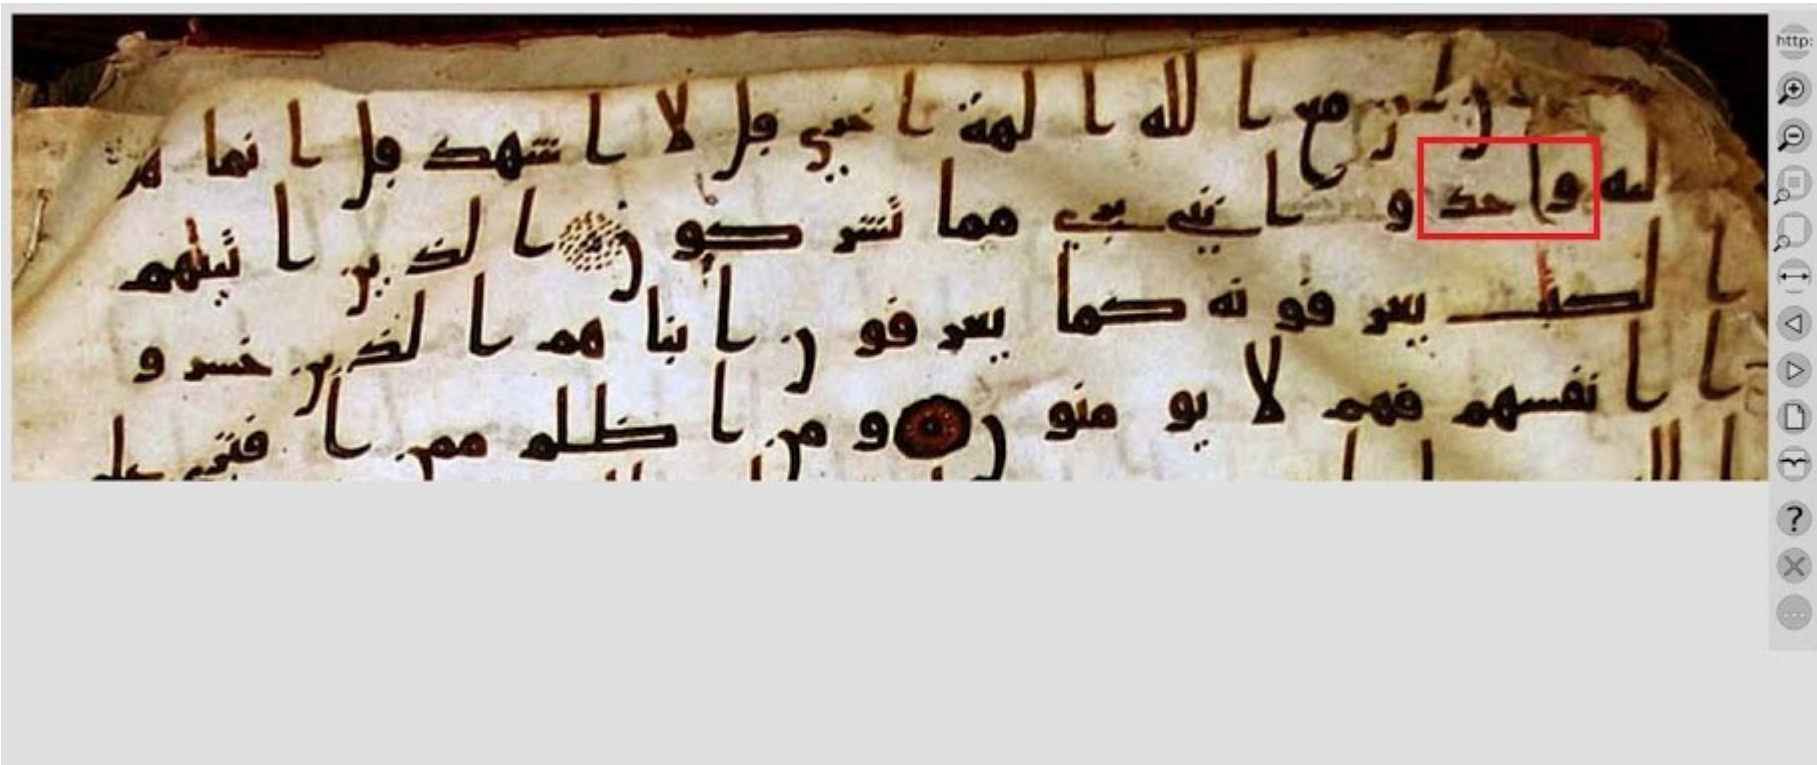 مع ا لله ا لهة ا خرى قل لا ا شهد قل ا نما
له واحد و ا ننى برى مما تشركون ا لذين ا تينهم
ا لكتب يعرفونه كما يعرفون ا بنا هم ا لذين خسرو
ا ا نفسهم فهم لا يومنون ومن ا ظلم ممن ا فترى على
http:
?